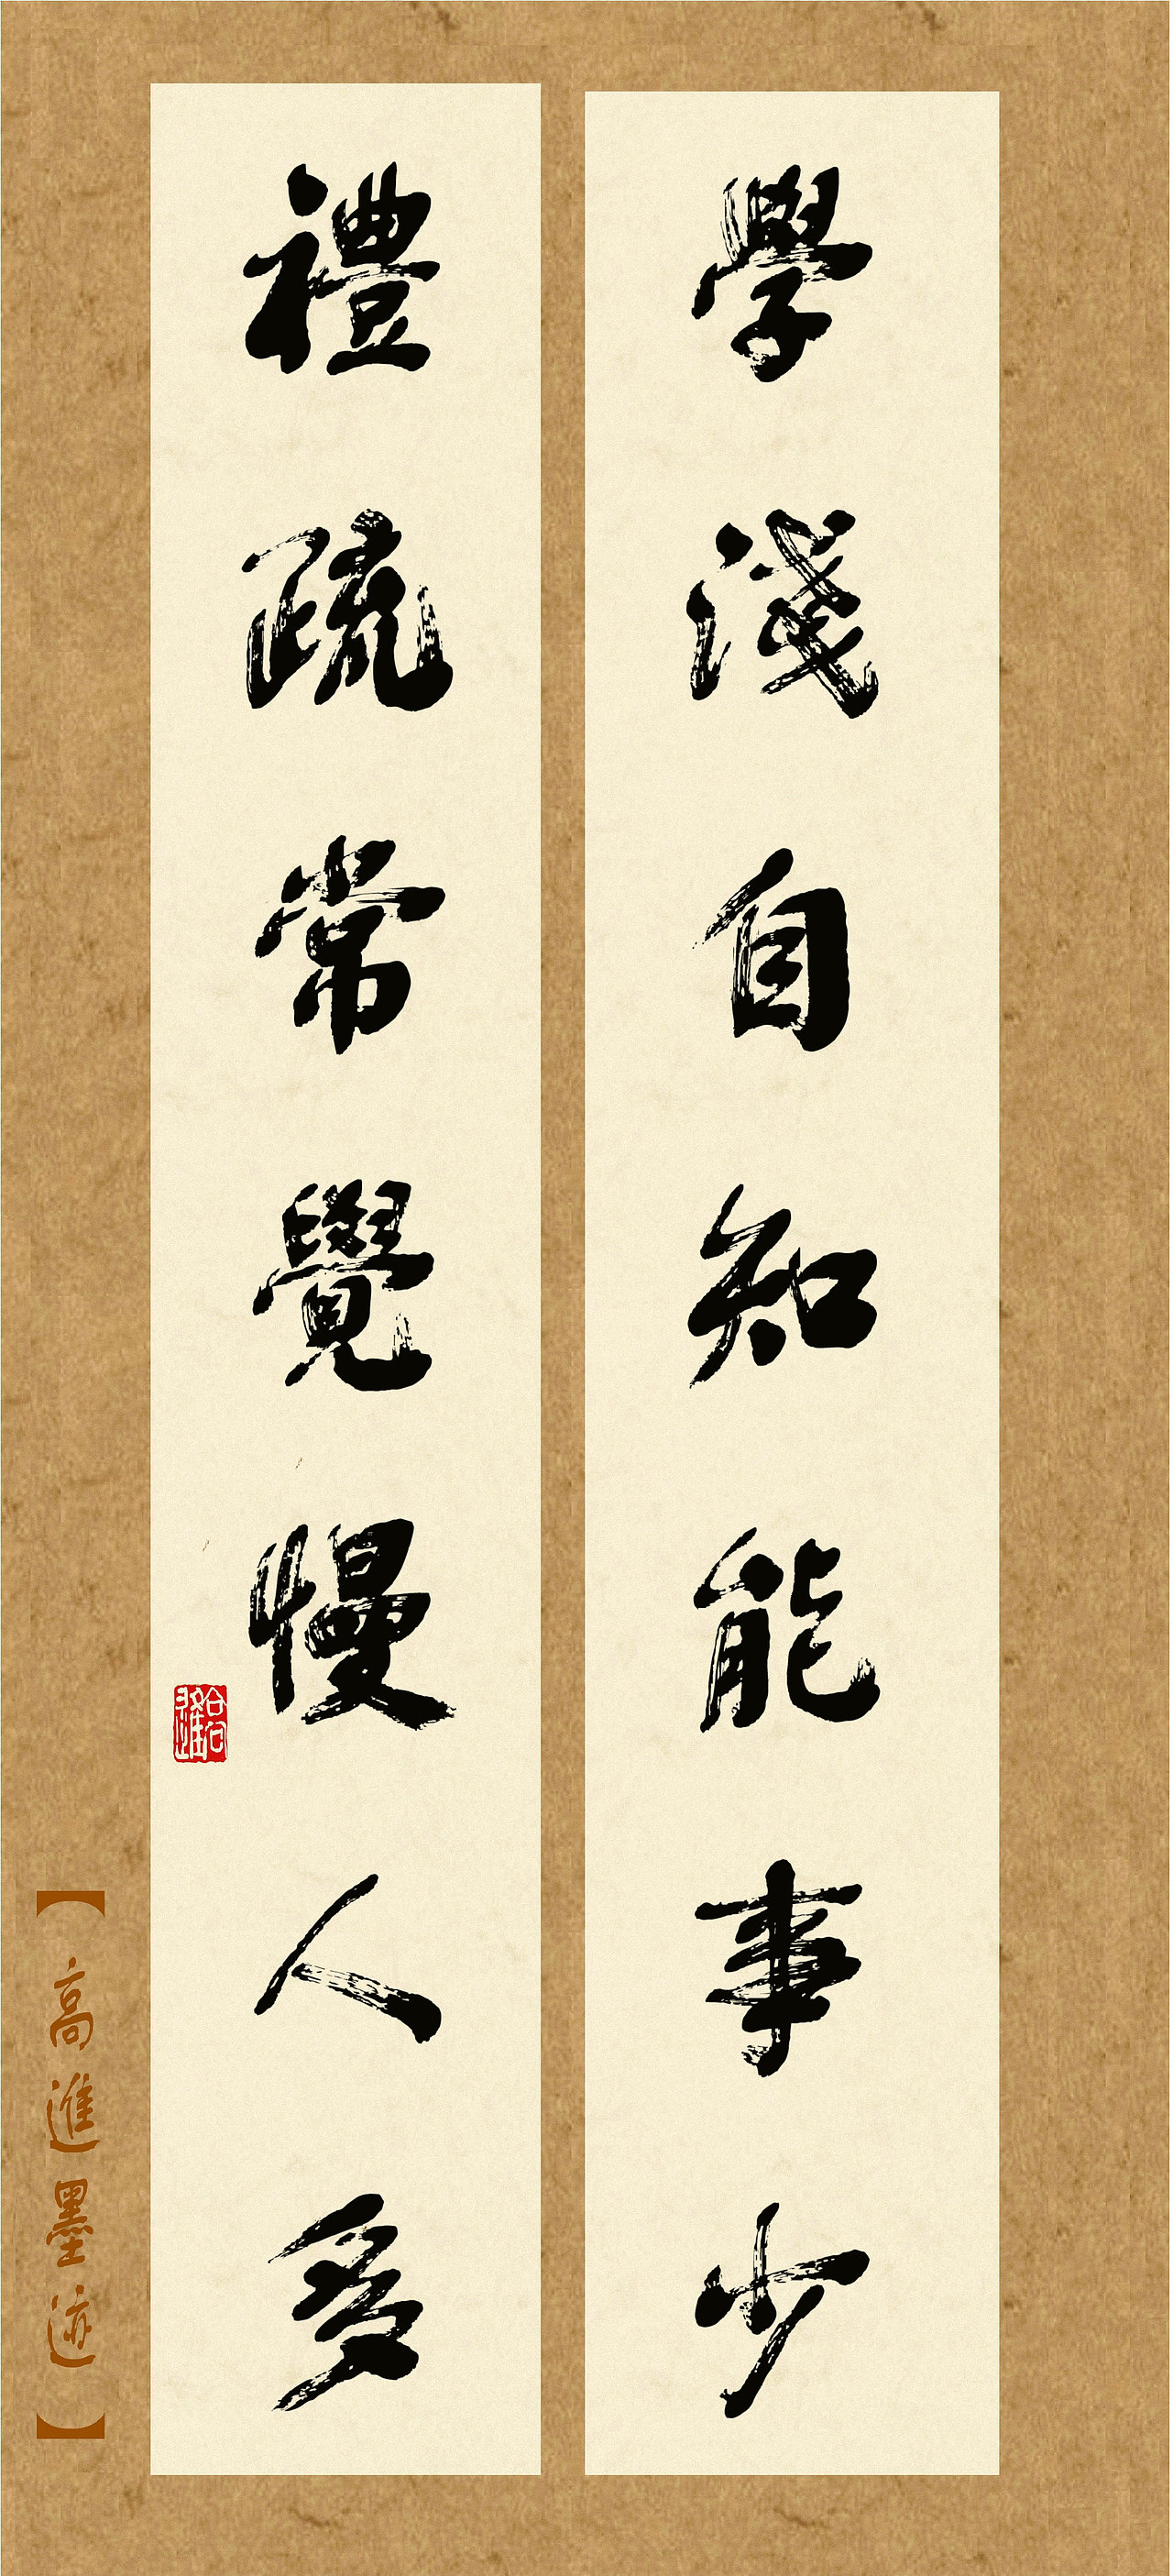 學淺自知能事少
禮疏常覺慢人多
【高進墨迹】